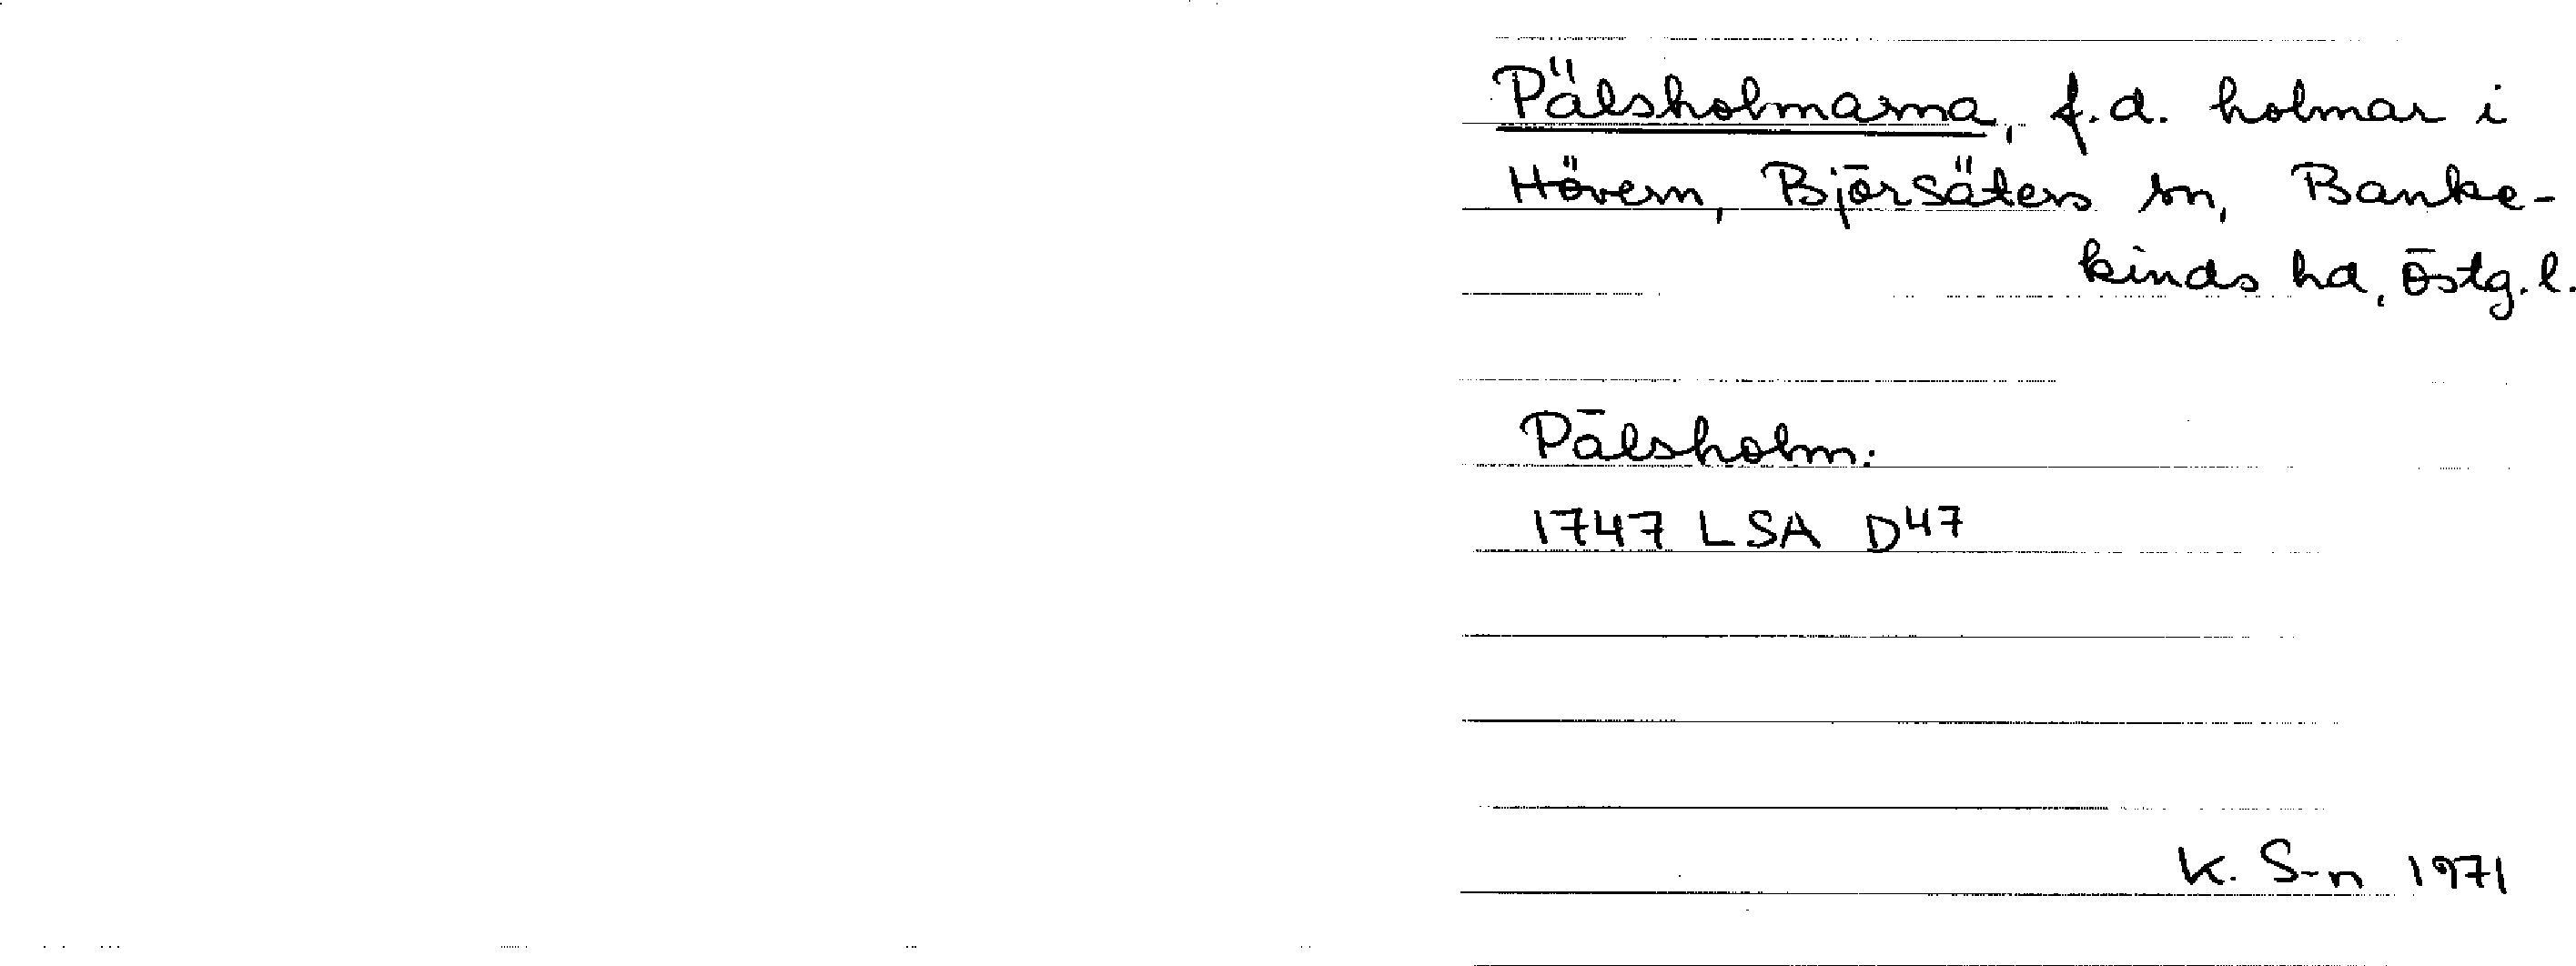 Pälsholmarna, f.d. holmar i
Hövern, Björsäters sn, Banke-
kinds hd, Östg.l.
Pälsholm:
1747 LSA D47
K. S-n 1971